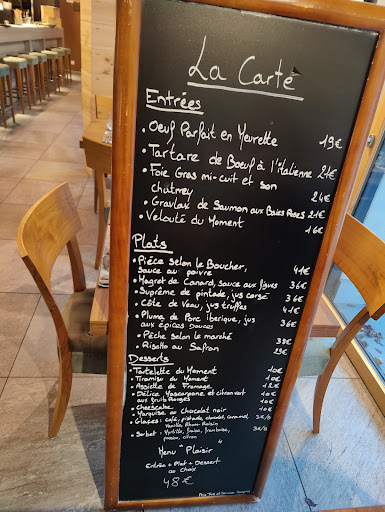 La Carte
Entrées
• Oeuf Parfait en Meurette 19€
• Tartare de Boeuf à l'Italienne 21€
• Foie Gras mi-cuit et son
chutney 24€
• Gravlax de Saumon aux Baies Roses 21€
• Velouté du Moment 16€
Plats
• Pièce selon le Boucher,
sauce au poivre 41€
• Magret de Canard, sauce aux figues 36€
• Suprême de pintade, jus corsé 36€
• Côte de Veau, jus truffes 41€
• Pluma de Porc ibérique, jus
aux épices douces 36€
• Pêche selon le marché 38€
• Risotto au Safran 29€
Desserts
• Tartelette du Moment 10€
• Tiramisu du Moment 10€
• Assiette de Fromage 12€
• Délice Mascarpone et citron vert
aux fruits Rouges 10€
• Cheesecake 10€
• Marquise au chocolat noir 10€
• Glaces: café, pistache, chocolat, caramel, 3€/b
Vanille, Rhum-Raisin
• Sorbet: Myrtille, fraise, framboise, 3€/b
passion, citron
Menu "Plaisir"
Entrée + Plat + Dessert
au Choix
48€
Prix Net et Services Compris